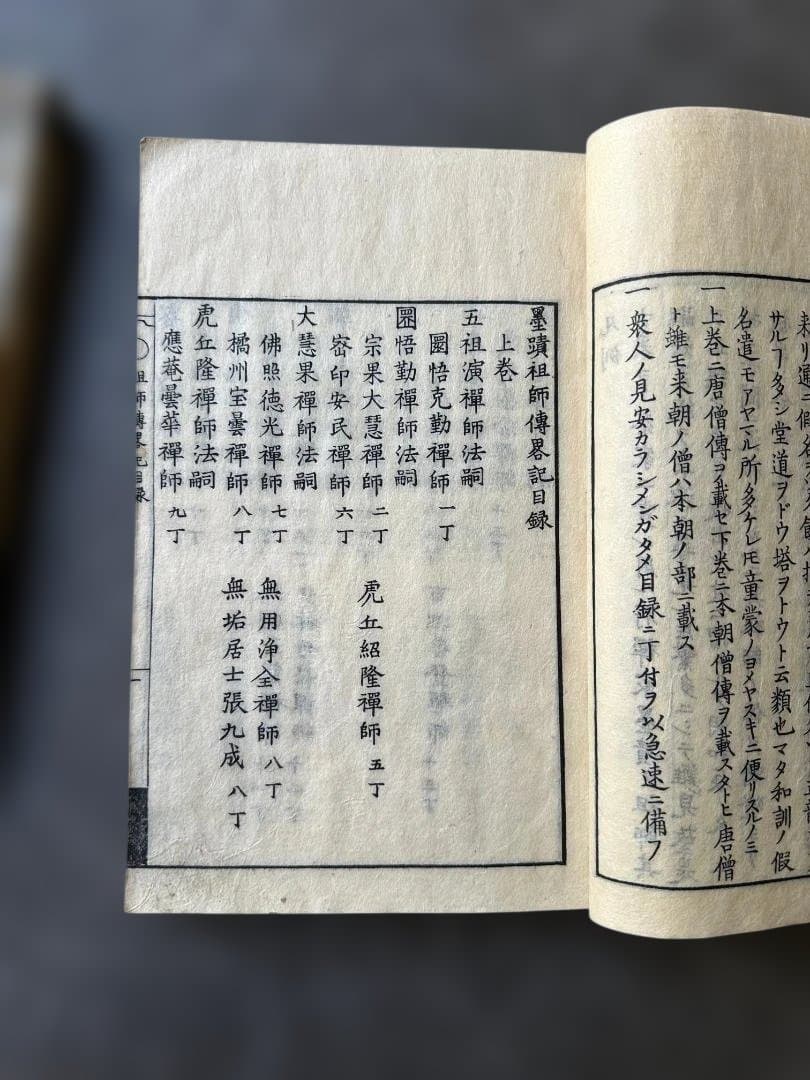 サルフタシ堂道ヲドウ塔ヲトウト云類也マタ和訓ノ假
名遣モアヤマル所多ケレ𪜈童蒙ノヨメヤスキニ便リスルノミ
一上巻ニ唐僧傳ヲ載セ下巻ニ本朝僧傳ヲ載スタトヒ唐僧
ト雖モ来朝ノ僧ハ本朝ノ部ニ載ス
一衆人ノ見安カラシメンガタメ目録ニ丁付ヲ以急速ニ備フ
墨蹟祖師傳畧記目録
上巻
五祖演禪師法嗣
圜悟克勤禪師 一丁
圜悟勤禪師法嗣
宗杲大慧禪師 二丁 虎丘紹隆禪師 五丁
密印安民禪師 六丁
大慧杲禪師法嗣
佛照徳光禪師 七丁 無用浄全禪師 八丁
橘州宝曇禪師 八丁 無垢居士張九成 八丁
虎丘隆禪師法嗣
應菴曇華禪師 九丁
祖師傳畧記目録 一